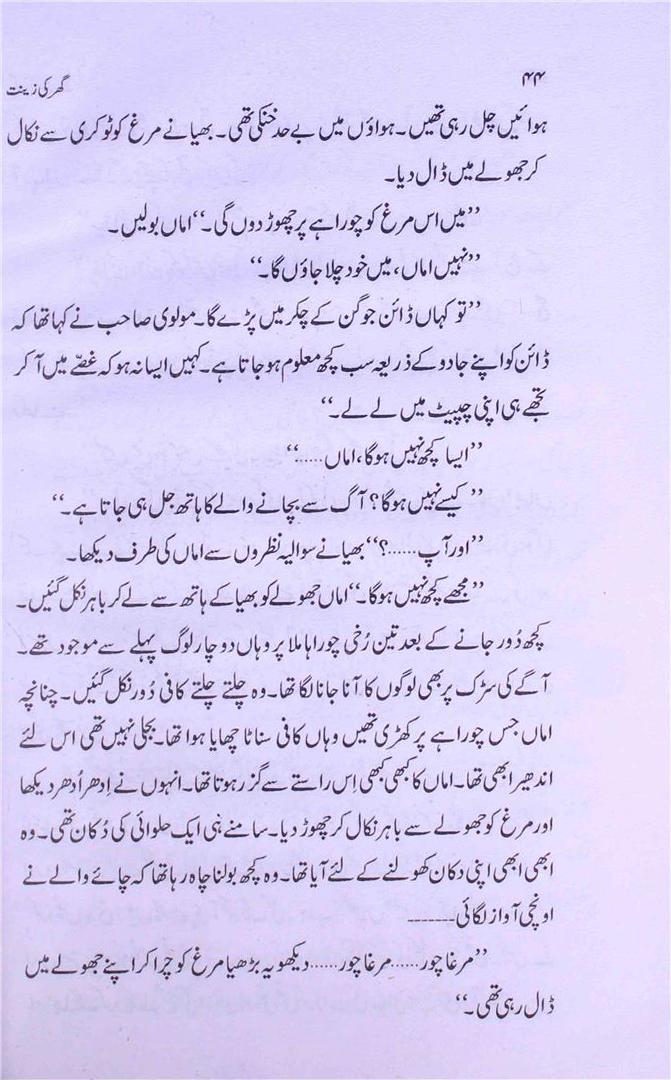 ۴۴
گھر کی زینت
ہوائیں چل رہی تھیں۔ ہواؤں میں بے حد خنکی تھی۔ بھیا نے مرغ کو ٹوکری سے نکال
کر جھولے میں ڈال دیا۔
”میں اس مرغ کو چوراہے پر چھوڑ دوں گی۔“ اماں بولیں۔
”نہیں اماں، میں خود چلا جاؤں گا۔“
”تو کہاں ڈائن جوگن کے چکر میں پڑے گا۔ مولوی صاحب نے کہا تھا کہ
ڈائن کو اپنے جادو کے ذریعہ سب کچھ معلوم ہو جاتا ہے۔ کہیں ایسا نہ ہو کہ غصّے میں آ کر
تجھے ہی اپنی چپیٹ میں لے لے۔“
”ایسا کچھ نہیں ہوگا، اماں......“
”کیسے نہیں ہوگا؟ آگ سے بچانے والے کا ہاتھ جل ہی جاتا ہے۔“
”اور آپ......؟“ بھیا نے سوالیہ نظروں سے اماں کی طرف دیکھا۔
”مجھے کچھ نہیں ہوگا۔“ اماں جھولے کو بھیا کے ہاتھ سے لے کر باہر نکل گئیں۔
کچھ دُور جانے کے بعد تین رُخی چوراہا ملا پر وہاں دو چار لوگ پہلے سے موجود تھے۔
آگے کی سڑک پر بھی لوگوں کا آنا جانا لگا تھا۔ وہ چلتے چلتے کافی دُور نکل گئیں۔ چنانچہ
اماں جس چوراہے پر کھڑی تھیں وہاں کافی سناٹا چھایا ہوا تھا۔ بجلی نہیں تھی اس لئے
اندھیرا بھی تھا۔ اماں کا کبھی کبھی اِس راستے سے گزر ہوتا تھا۔ انہوں نے اِدھر اُدھر دیکھا
اور مرغ کو جھولے سے باہر نکال کر چھوڑ دیا۔ سامنے ہی ایک حلوائی کی دُکان تھی۔ وہ
ابھی ابھی اپنی دکان کھولنے کے لئے آیا تھا۔ وہ کچھ بولنا چاہ رہا تھا کہ چائے والے نے
اونچی آواز لگائی ــــــــ
”مرغا چور...... مرغا چور...... دیکھو یہ بڑھیا مرغ کو چرا کر اپنے جھولے میں
ڈال رہی تھی۔“